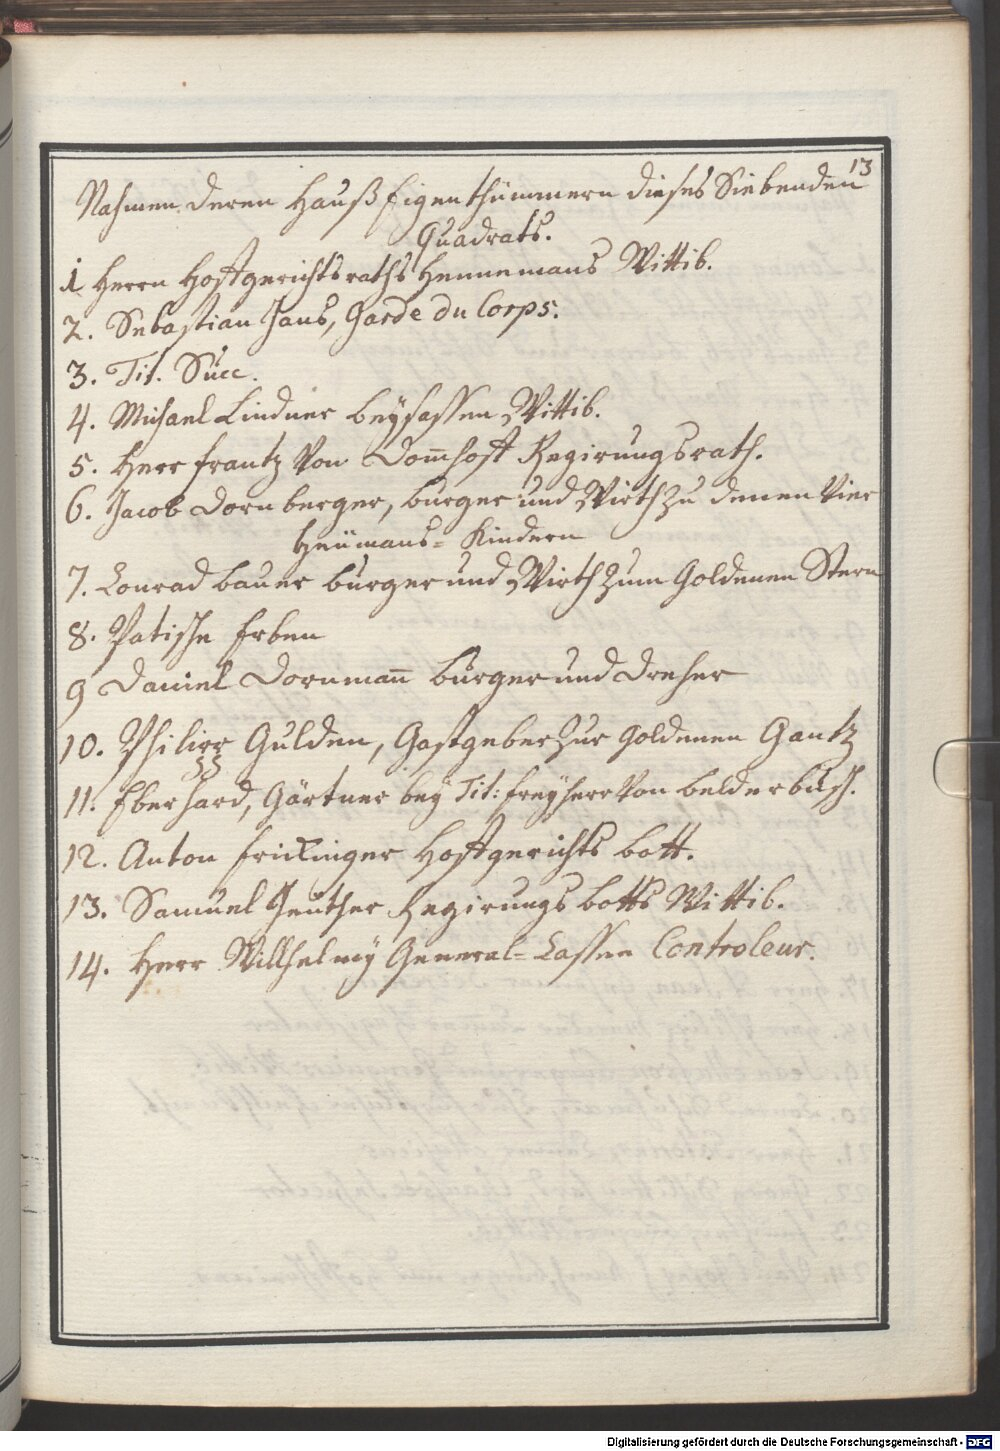 13
Nahmen deren Hauß Eigenthümmern dieses Siebenden
Quadrats.
1 Herrn Hoffgerichtsraths Hennemans Wittib.
2. Sebastian Jans, Garde du Corps.
3. Tit. Succ.
4. Michael Lindner beysassen Wittib.
5. Herr frantz Von Dom̅hoff Regirungsrath.
6. Jacob Dornberger, burger und Wirth zu denen Vier
Heümans= Kindern
7. Conrad bauer burger und Wirth zum Goldenen Stern
8. Patische Erben
9 Daniel Dornman̅ burger und Dreher
10. Philipp Gulden, Gastgeber zur goldenen Gantz
11. Eberhard, Gärtner bey Tit: freyherr Von belderbusch.
12. Anton frickinger Hoffgerichts bott.
13. Samuel Geuther Regirungs botts Wittib.
14. Herr Willhelmy General= Cassen Controleur.
Digitalisierung gefördert durch die Deutsche Forschungsgemeinschaft - DFG